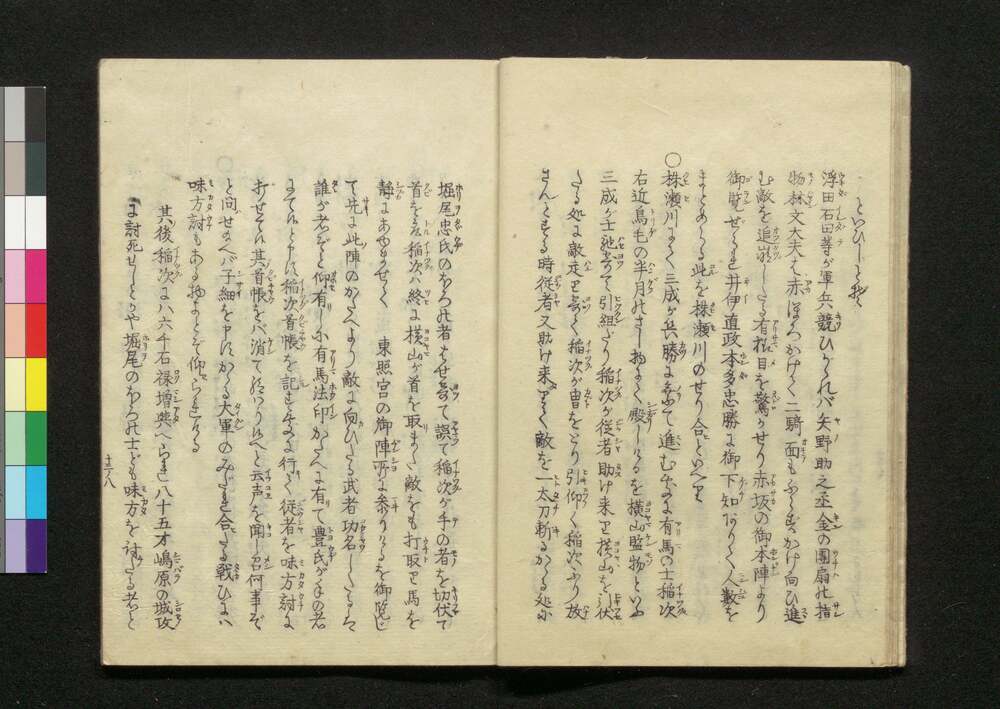 といひしとぞ
浮田石田等が軍兵競ひかゝれバ矢野助之丞金の團扇の指
物林文大夫ハ赤ほろかけて二騎面もふらずかけ向ひ進
む敵を追崩したる有様目を驚かせり赤坂の御本陣より
御覧ぜられ井伊直政本多忠勝に御下知ありて人数を
まとめらる此を株瀬川のせり合といへり
○株瀬川にて三成が兵勝に乗て進む中に有馬の士稲次
右近鳥毛の半月のさし物にて殿しけるを横山監物といふ
三成が士馳寄て引組たり稲次が従者助け来て横山を討伏
たる処に敵走り寄て稲次が冑をとり引仰く稲次ふり放
さんとする時従者又助け来りて敵を一太刀斬るかゝる処に
堀尾忠氏の者はせ寄て誤て稲次が手の者を切伏て
首を取稲次ハ終に横山が首を取また敵をも打取て馬を
静にあゆませて 東照宮の御陣所に参りけるを御覧じ
て先に此陣のかたへより敵に向ひたる武者功名したるハ
誰が者ぞと仰有しに有馬法印かたへに有て豊氏が手の者
にてハと申に稲次首帳を記す所に行て従者を味方討に
打せてハ其首帳をバ消て給ハり候へと云声を聞し召何事ぞ
と問せ給へバ子細を申にかゝる大軍のみだれ合たる戦ひにハ
味方討もある物にとて仰られける
其後稲次にハ六千石禄増與へられ八十五才嶋原の城攻
に討死せしとかや堀尾の士ども味方を討たる者と
十八